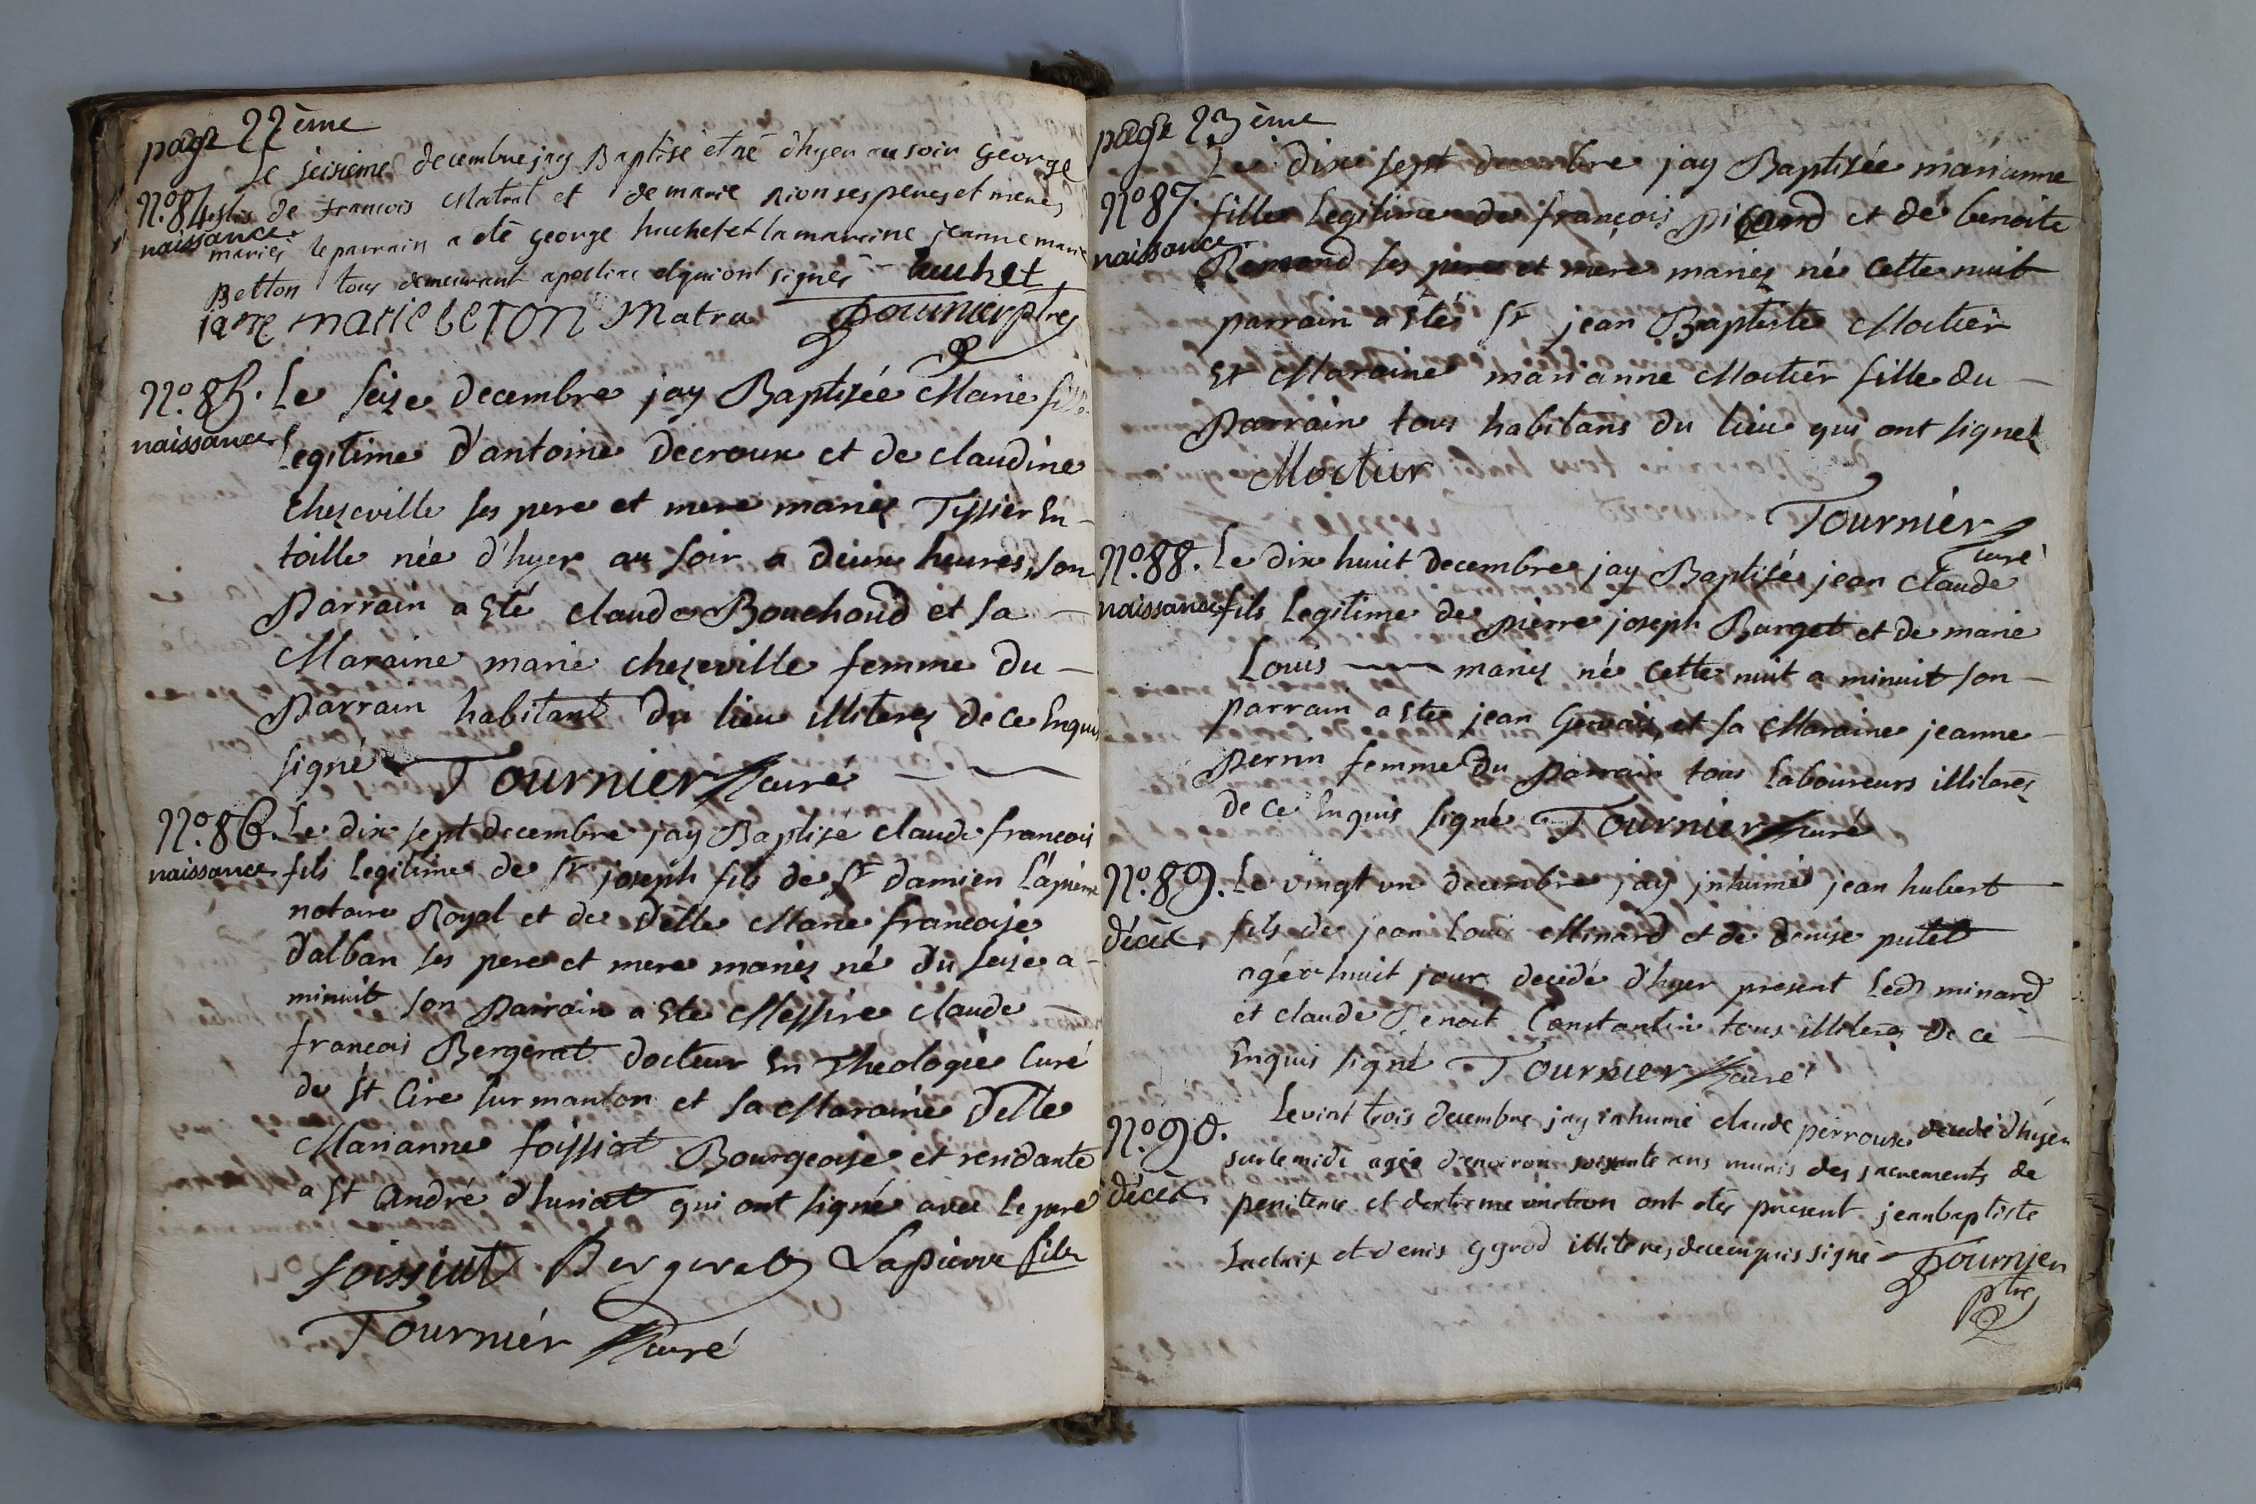 page 22ème
Le seisieme decembre jay Baptisé et né d'hyer au soir george
N.o 84. fils de francois Matrat et de marie Rion ses peres et meres
naissance. mariés le parrain a été george huchet et la maraine jeanne marie
Betton tous demeurant a postiac et qui ont signés - huchet
jane marie beton Matra Fournier ptre
N.o 85. Le seize decembre jay Baptizée Marie fille
naissance. Legitime d'antoine Decroux et de claudine
chezeville ses pere et mere mariez Tissier En-
toille née d'hyer au soir a deux heures, son
Parrain a Eté claude Bouchoud et sa -
Maraine marie chezeville femme du -
Parrain habitant du lieu illiterez de ce Enquis
signé Tournier curé
N.o 86. Le dix sept decembre jay Baptizé claude francois
naissance. fils legitime de sr joseph fils de sr damien Lapierre
notaire Royal et de delle Marie francoise
d'alban ses pere et mere mariez né du seize a -
minuit son Parrain a Ete Messire claude -
francois Bergerat docteur En Theologie Curé
de St Cire sur manton et sa Maraine delle
Marianne foissiat Bourgeoise et residante
a St andré d'huriat qui ont signé avec le pere
foissiat Bergerat Lapierre fils
Tournier curé
page 23ème
Le dix sept decembre jay Baptizée marianne
N.o 87. fille Legitime de françois Picard et de benoite
naissance Remond ses pere et mere mariez né cette nuit
parrain a Eté sr jean Baptiste Moctier
Et Maraine marianne Moctier fille du -
Parrain tous habitans du lieu qui ont signez
Moctier
Tournier
curé
N.o 88. Le dix huit decembre jay Baptisé jean claude
naissance fils legitime de pierre joseph Barget et de marie
Louis mariez né cette nuit a minuit son -
parrain a Ete jean Gervais, et sa Maraine jeanne -
Perrin femme du Parrain tous Laboureurs illiterez
de ce Enquis signé Tournier curé
N.o 89. Le vingt un decembre jay inhumé jean hubert
décèt. fils de jean Louis Minard et de denise putet
agé de huit jour decedé d'hyer present ledt minard
et claude Benoit Constantin tous illiterez de ce -
Enquis signé Tournier curé
Le vint trois decembre jay inhumé claude perroux decedé d'hyer
N.o 90. sur le midi agée d'environ soisente ans munis des sacrements de
décèt. penitence et d'extreme onction ont etés present jean baptiste
Ladaix et denis ggrod illiteres de ce enquis signé Fournier
ptre